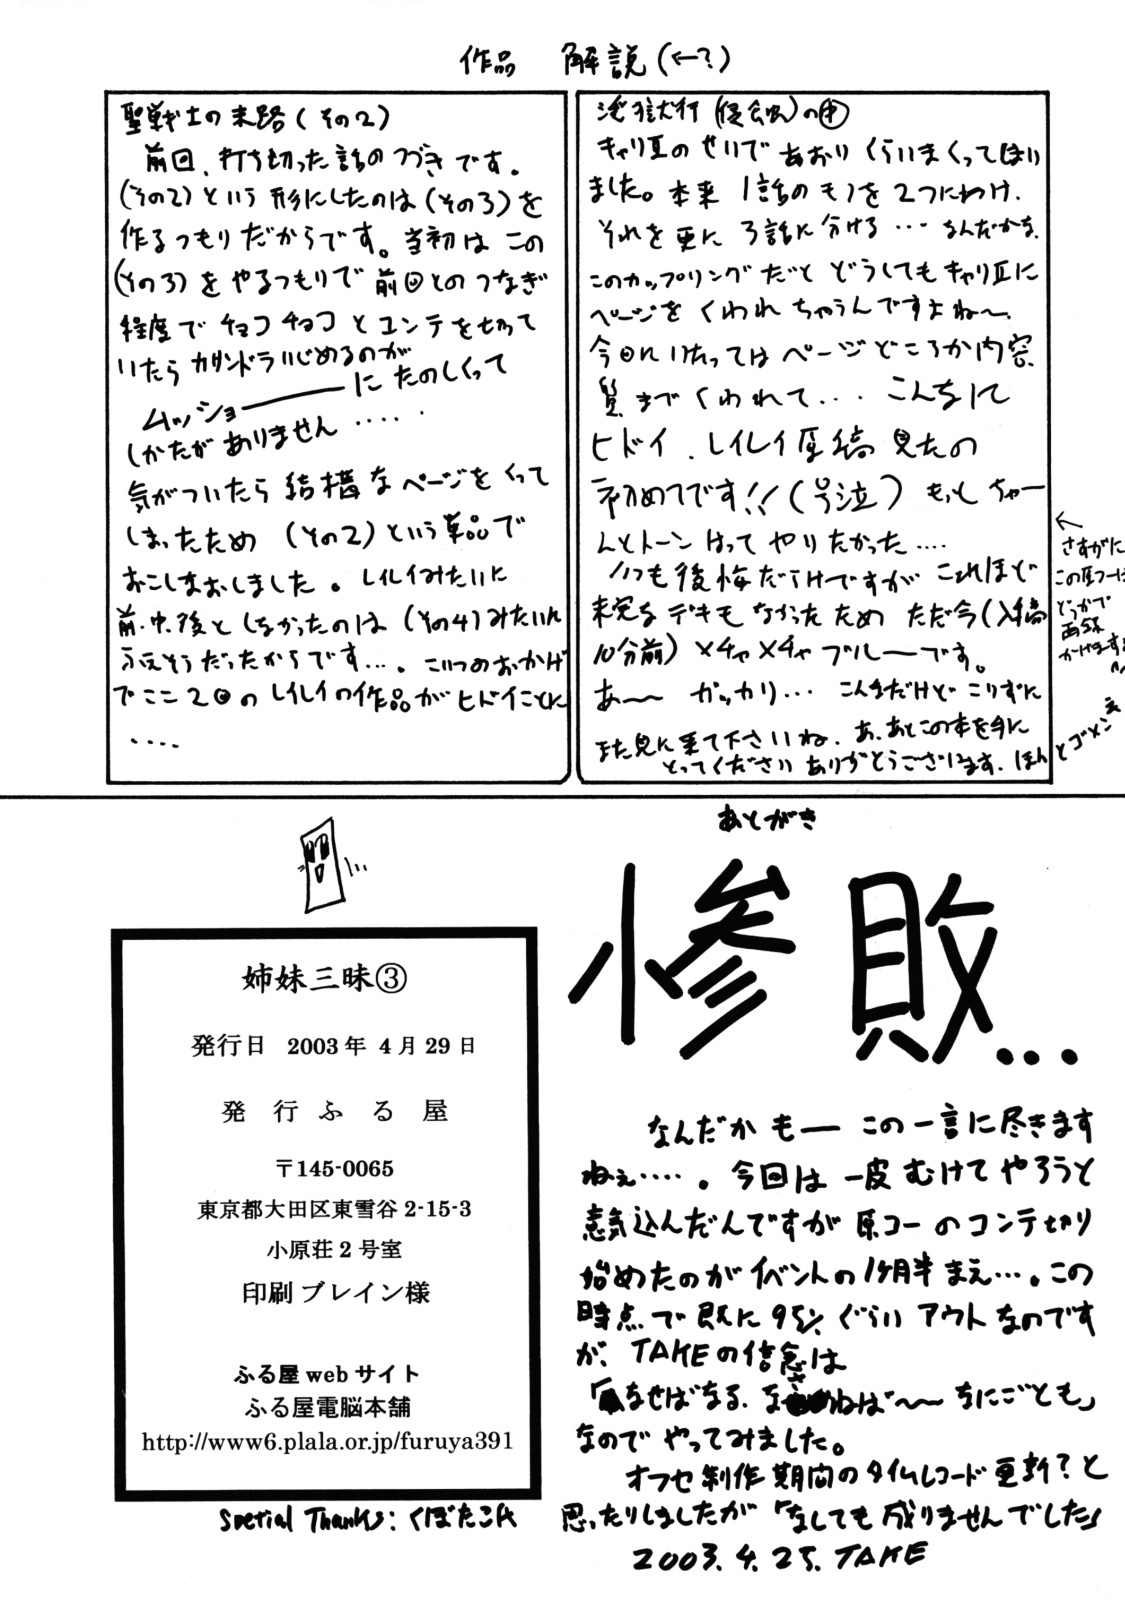 作品 解説(←?)
聖戦士の末路(その2)
前回、打ち切った話のつづきです。
(その2)という形にしたのは(その3)を
作るつもりだからです。当初はこの
(その3)をやるつもりで前回とのつなぎ
程度でチョコチョコとコンテを切って
いたらカサンドラいじめるのが
ムッショーーーに たのしくって
しかたがありません‥‥‥
気がついたら結構なページをくって
しまったため (その2)という単品で
おこしなおしました。レイレイみたいに
前・中・後としなかったのは(その4)みたいに
ふえそうだったからです‥‥。こいつのおかげ
でここ2回のレイレイの作品がヒドイことに
‥‥
獄行(侵蝕)の中
キャリ豆のせいであおりくらいまくってまい
ました。本来 1話のモノを2つにわけ、
それを更に3話に分ける‥‥なんだかな。
このカップリングだとどうしてもキャリ豆に
ページをくわれちゃうんですよね〜。
今回にいたってはページどころか内容、
質までくわれて‥‥こんなに
ヒドイ、レイレイ原稿見たの
初めてです!!(号泣)もっとちゃー
んとトーンはってやりたかった‥‥
いつも後悔だらけですがこれほど
未完なデキもなかったため ただ今(入稿
10分前)メチャメチャブルーです。
あ〜〜ガッカリ‥‥こんなだけどこりずに
また見に来て下さいね。あ、あとこの本を手に
とってくださいありがとうございます。ほんとゴメンネ
←
さすがに
この原コーは
どうかで
再録
かけますよ
あとがき
惨敗...
なんだか もーー この一言に尽きます
ねぇ‥‥‥。今回は一皮むけてやろうと
意気込んだんですが原コーのコンテ切り
始めたのがイベントの1ヶ月半まえ‥‥。この
時点で既に95%ぐらいアウトなのです
が、TAKEの信念は
「なせばなる、なさねば〜〜なにごとも」
なのでやってみました。
オフセ制作期間のタイムレコード更新?と
思ったりしましたが「なしても成りませんでした」
2003.4.25.TAKE
姉妹三昧③
発行日 2003年4月29日
発 行 ふ る 屋
〒145-0065
東京都大田区東雪谷2-15-3
小原荘2号室
印刷 ブレイン様
ふる屋webサイト
ふる屋電脳本舗
http://www6.plala.or.jp/furuya391
Special Thanks:くぼたこん